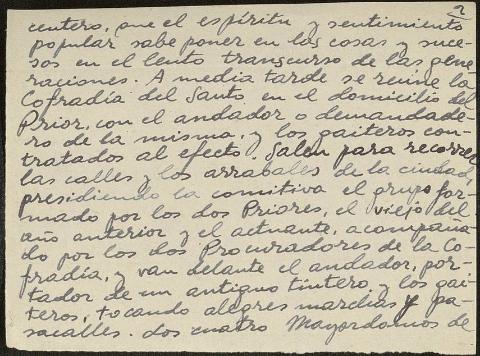 2
centero, que el espíritu y sentimiento
popular sabe poner en las cosas y suce-
sos en el lento transcurso de las gene-
raciones. A media tarde se reúne la
Cofradía del Santo en el domicilio del
Prior, con el andador o demandade-
ro de la misma, y los gaiteros con-
tratados al efecto. Salen para recorrer
las calles y los arrabales de la ciudad,
presidiendo la comitiva el grupo for-
mado por los dos Priores, el viejo del
año anterior y el actuante, acompaña-
do por los dos Procuradores de la Co-
fradía, y van delante el andador, por-
tador de un antiguo tintero, y los gai-
teros, tocando alegres marchas y pa-
sacalles. Los cuatro Mayordomos de